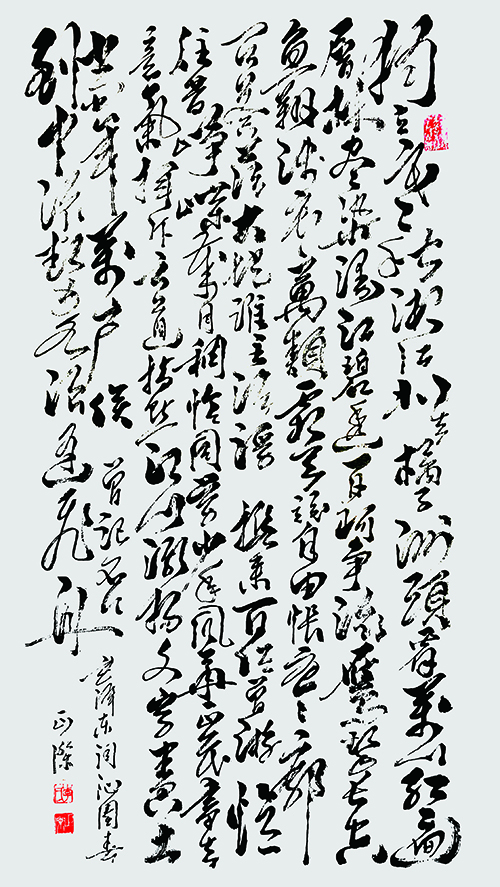 獨立寒秋湘江北去橘子洲頭看萬山紅遍
層林盡染漫江碧透百舸爭流鷹擊長空
魚翔淺底萬類霜天競自由悵寥廓
問蒼茫大地誰主沉浮 攜來百侶曾游憶
往昔崢嶸歲月稠恰同學少年風華正茂書生
意氣揮斥方遒指點江山激揚文字糞土
當年萬户侯 曾記否
到中流擊水浪遏飛舟
毛澤東詞沁園春
正際